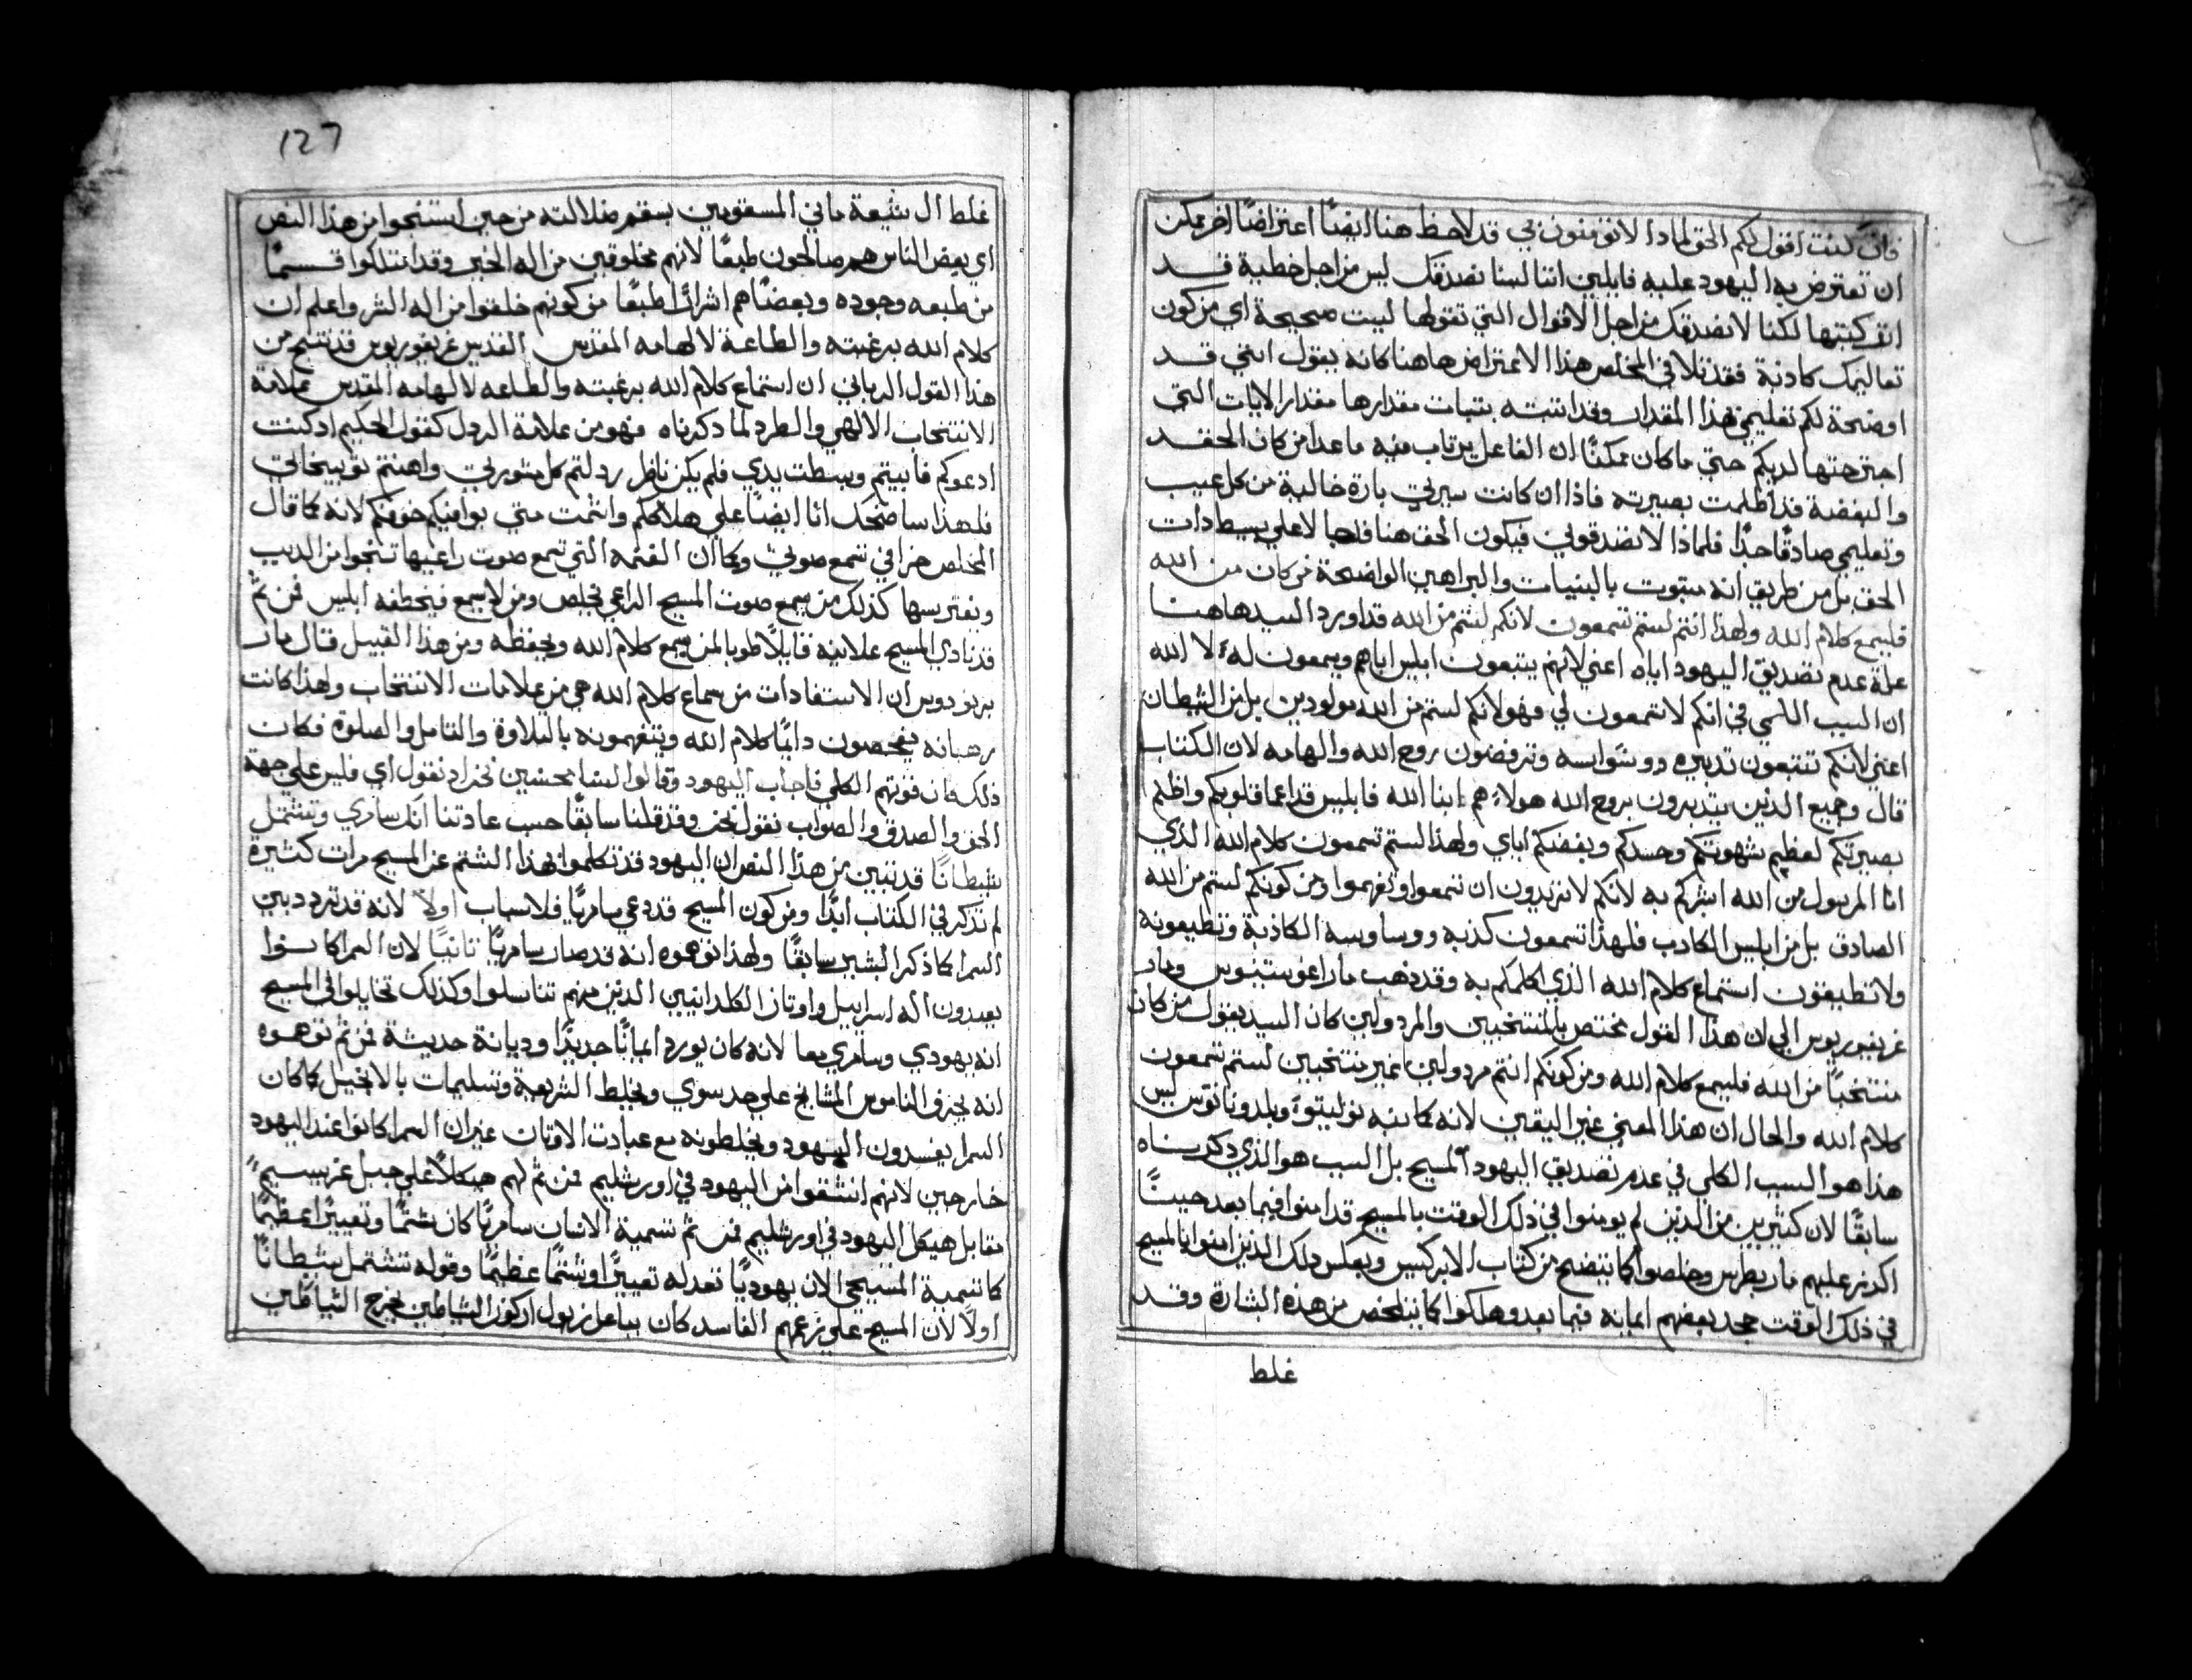 فان كنت اقول لكم الحق لمادا لا تومنون بي قد لاحظ هنا ايضًا اعتراضًا اخر يمكن
ان تعترض به اليهود عليه قايلين اننا لسنا نصدقك ليس من اجل خطية قد
ارتكبتها لكنا لا نصدقك من اجل الاقوال التي تقولها ليست صحيحة اي من كون
تعاليمك كادبة فقد تلافي المخلص هذا الاعتراض هاهنا كانه يقول انني قد
اوضحة لكم تعليمي بهذا المقدار وقد اثبته بثبات مقدارها مقدار الايات التي
اجترحتها لديكم حتي ما كان ممكنًا ان الفاعل يرتاب منه ما عدا من كان الحقد
والبغضة قد اظلمت بصيرته فادا ان كانت سيرتي بارة خالية من كل عيب
وتعليمي صادقًا جدًا فلماذا لا تصدقوني فيكون الحق هنا لا علي بسيط دات
الحق بل من طريق انه مثبوت بالبنيات والبراهين الواضحة من كان من الله
فليسمع كلام الله ولهذا انتم لستم تسمعون لانكم لستم من الله قد اورد السيد هاهنا
علة عدم تصديق اليهود اياه اعني لانهم يتبعون ابليس اباهم ويسمعون له لا الله
ان السبب الاسمي في انكم لا تسمعون لي فهو لانكم لستم من الله مولودين بل من الشيطان
اعني لانكم تتبعون تدبيره ووسواسه وترفضون روح الله والهامه لان الكتاب
قال وجميع الذين يتدبرون بروح الله هولاء هم ابنا الله فابليس قد اعما قلوبكم واظلم
بصيرتكم لعظم شهوتكم وحسدكم وبغضكم اياي ولهذا لستم تسمعون كلام الله الذي
انا المرسول من الله ابشركم به لانكم لا تريدون ان تسمعوا وتفهموا ومن كونكم لستم من الله
الصادق بل من ابليس الكادب فلهذا تسمعون كذبه ووساوسه الكاذبة وتطيعونه
ولا تطيقون استماع كلام الله الذي اكلمكم به وقد دهب مار اغوستينوس ومار
غريغوريوس الي ان هذا القول مختص بالمنتخبين والمردولين كان السيد يقول من كان
منتخبًا من الله فليسمع كلام الله ومن كونكم انتم مردولين غير منتخبين لستم تسمعون
كلام الله والحال ان هذا المعني غير اليقين لانه كما نبه توليتوا وملدوناتوس ليس
هذا هو السبب الكلي في عدم تصديق اليهود المسيح بل السبب هو الذي دكرناه
سابقًا لان كثيرين من الذين لم يومنوا في ذلك الوقت بالمسيح قد امنوا فيما بعد حيث
اكرز عليهم مار بطرس وخلصوا كما يتضح من كتاب الابركسيس وبعكس دلك الذين امنوا بالمسيح
في ذلك الوقت جحد بعضهم ايمانه فيما بعد وهلكوا كما يتلخص من هذه البشارة وقد
غلط
127
غلط ال شيعة ماني المسقومين بسقم ضلالته من حين استنتجوا من هذا النص
اي بعض الناس هم صالحون طبعًا لانهم مخلوقين من اله الخير وقد امتلكوا قسمًا
من طبعه وجوده وبعضًا هم اشرارًا طبعًا من كونهم خلقوا من اله الشر واعلم ان
كلام الله برغبته والطاعة لالهامه المقدس القديس غريغوريوس قد تنتج من
هذا القول الرباني ان استماع كلام الله برغبته والطاعه لالهامه المقدس علامة
الانتخاب الالهي والطرد لما دكرناه فهو من علامة الردل كقول الحكيم اد كنت
ادعوكم فابيتم وبسطت يدي فلم يكن ناظر ردلتم كل مشورتي واهنتم توبيخاتي
فلهذا ساضحك انا ايضًا علي هلاككم واشمت متي يوافيكم خوفكم لانه كما قال
المخلص خرافي تسمع صوتي وكما ان الغنمه التي تسمع صوت راعيها تنجوا من الديب
ويفترسها كذلك من يسمع صوت المسيح الراعي يخلص ومن لا يسمع فيخطفه ابليس فمن ثم
قد نادي المسيح علانية قايلاً طوبا لمن يسمع كلام الله ويحفظه ومن هذا القبيل قال مار
برنردوس ان الاستفادات من سماع كلام الله هي من علامات الانتخاب ولهذا كانت
رهبانه يفحصون دايمًا كلام الله ويتفهمونه بالتلاوة والتامل والصلوة فكان
ذلك قوتهم الكلي فاجاب اليهود وقالوا لسنا محسنين نحن اد نقول اي فليس علي جهة
الحق والصدق والصواب نقول نحن وقد قلنا سابقًا حسب عادتنا انك سامري وتشتمل
شيطانًا قد تبين من هذا النص ان اليهود قد تكلموا بهذا الشتم عن المسيح مرات كثيرة
لم تدكر في الكتاب ابدًا ومن كون المسيح قد دعي سامريًا فلاسباب اولاً لانه قد تردد بين
السمرا كما ذكر البشير سابقًا ولهذا توهموه انه قد صار سامريًا ثانيًا لان السمرا كانوا
يعبدون اله اسراييل واوثان الكلدانيين الذين منهم تناسلوا وكذلك تخايلوا في المسيح
انه يهودي وسامري معا لانه كان يورد ايمانًا جديدًا وديانة حديثة فمن ثم توهموه
انه يحرف الناموس علي حد سوي ويخلط الشريعة وتسليمات بالانجيل كما كان
السمرا يفسدون اليهود ويخلطونه مع عبادت الاوثان غير ان السمرا كانوا عند اليهود
خارجين لانهم انشقوا من اليهود في اورشليم فمن ثم لهم هيكلاً علي جبل غريسيم
مقابل هيكل اليهود في اورشليم فمن ثم تسمية الانسان سامريًا كان شتمًا وتعييرًا عظيمًا
كما تسمية المسيحي الان يهوديًا تعد له تعييرًا وشتمًا عظيمًا وقوله تشتمل شيطانًا
اولاً لان المسيح علي زعمهم الفاسد كان بباعل زبول اركون الشياطين يخرج الشياطين